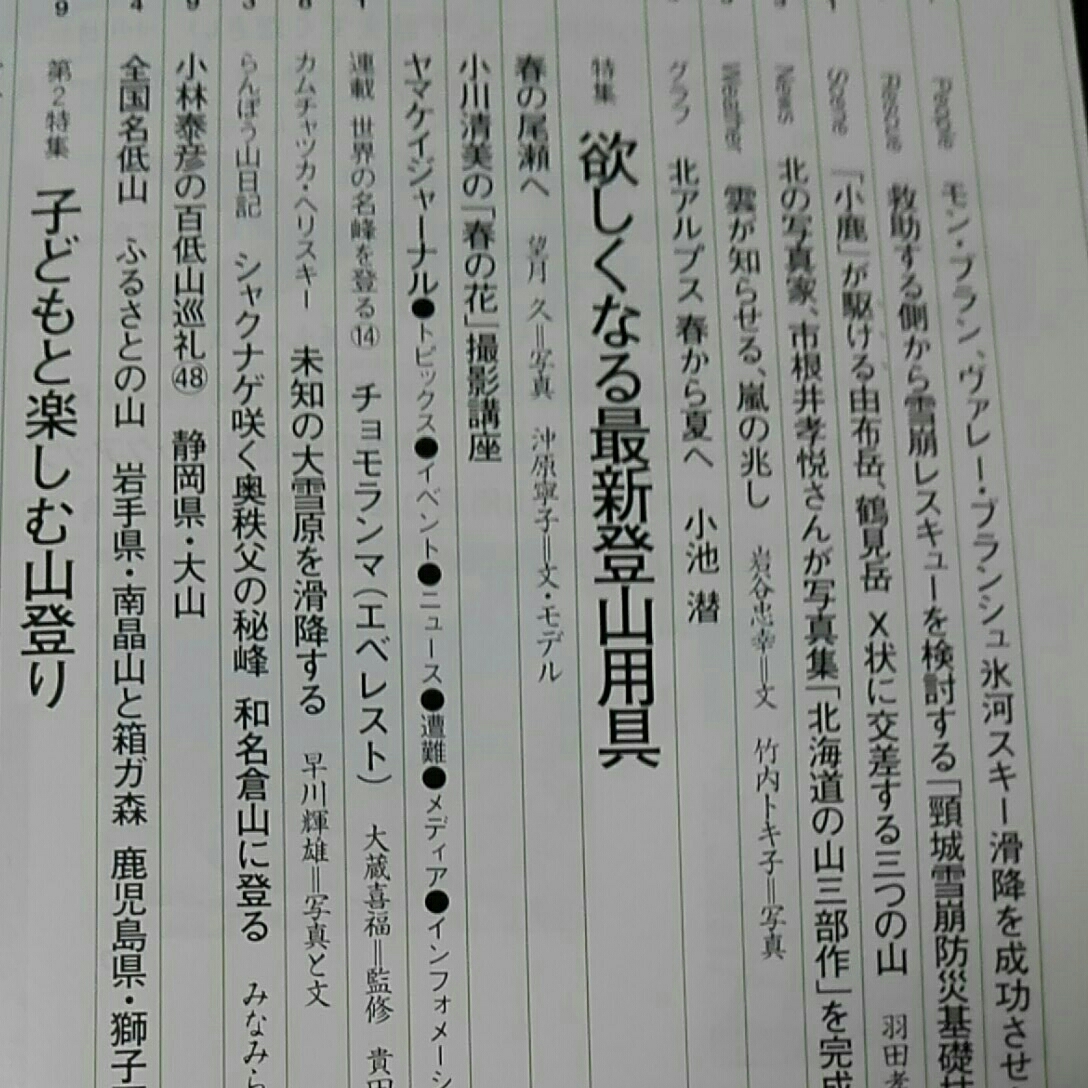 People モン・ブラン、ヴァレー・ブランシュ氷河スキー滑降を成功させ
Rescue 救助する側から雪崩レスキューを検討する「頸城雪崩防災基礎
Scene 「小鹿」が駆ける由布岳、鶴見岳 X状に交差する三つの山 羽田
News 北の写真家、市根井孝悦さんが写真集「北海道の山三部作」を完成
Weather 雲が知らせる、嵐の兆し 岩谷忠幸=文 竹内トキ子=写真
グラフ 北アルプス 春から夏へ 小池 潜
特集 欲しくなる最新登山用具
春の尾瀬へ 望月 久=写真 沖原寧子=文・モデル
小川清美の「春の花」撮影講座
ヤマケイジャーナル●トピックス●イベント●ニュース●遭難●メディア●インフォメーシ
連載 世界の名峰を登る⑭ チョモランマ(エベレスト) 大蔵喜福=監修 貴田
カムチャツカ・ヘリスキー 未知の大雪原を滑降する 早川輝雄=写真と文
らんぼう山日記 シャクナゲ咲く奥秩父の秘峰 和名倉山に登る みなみら
小林泰彦の百低山巡礼㊽ 静岡県・大山
全国名低山 ふるさとの山 岩手県・南晶山と箱ガ森 鹿児島県・獅子
第2特集 子どもと楽しむ山登り